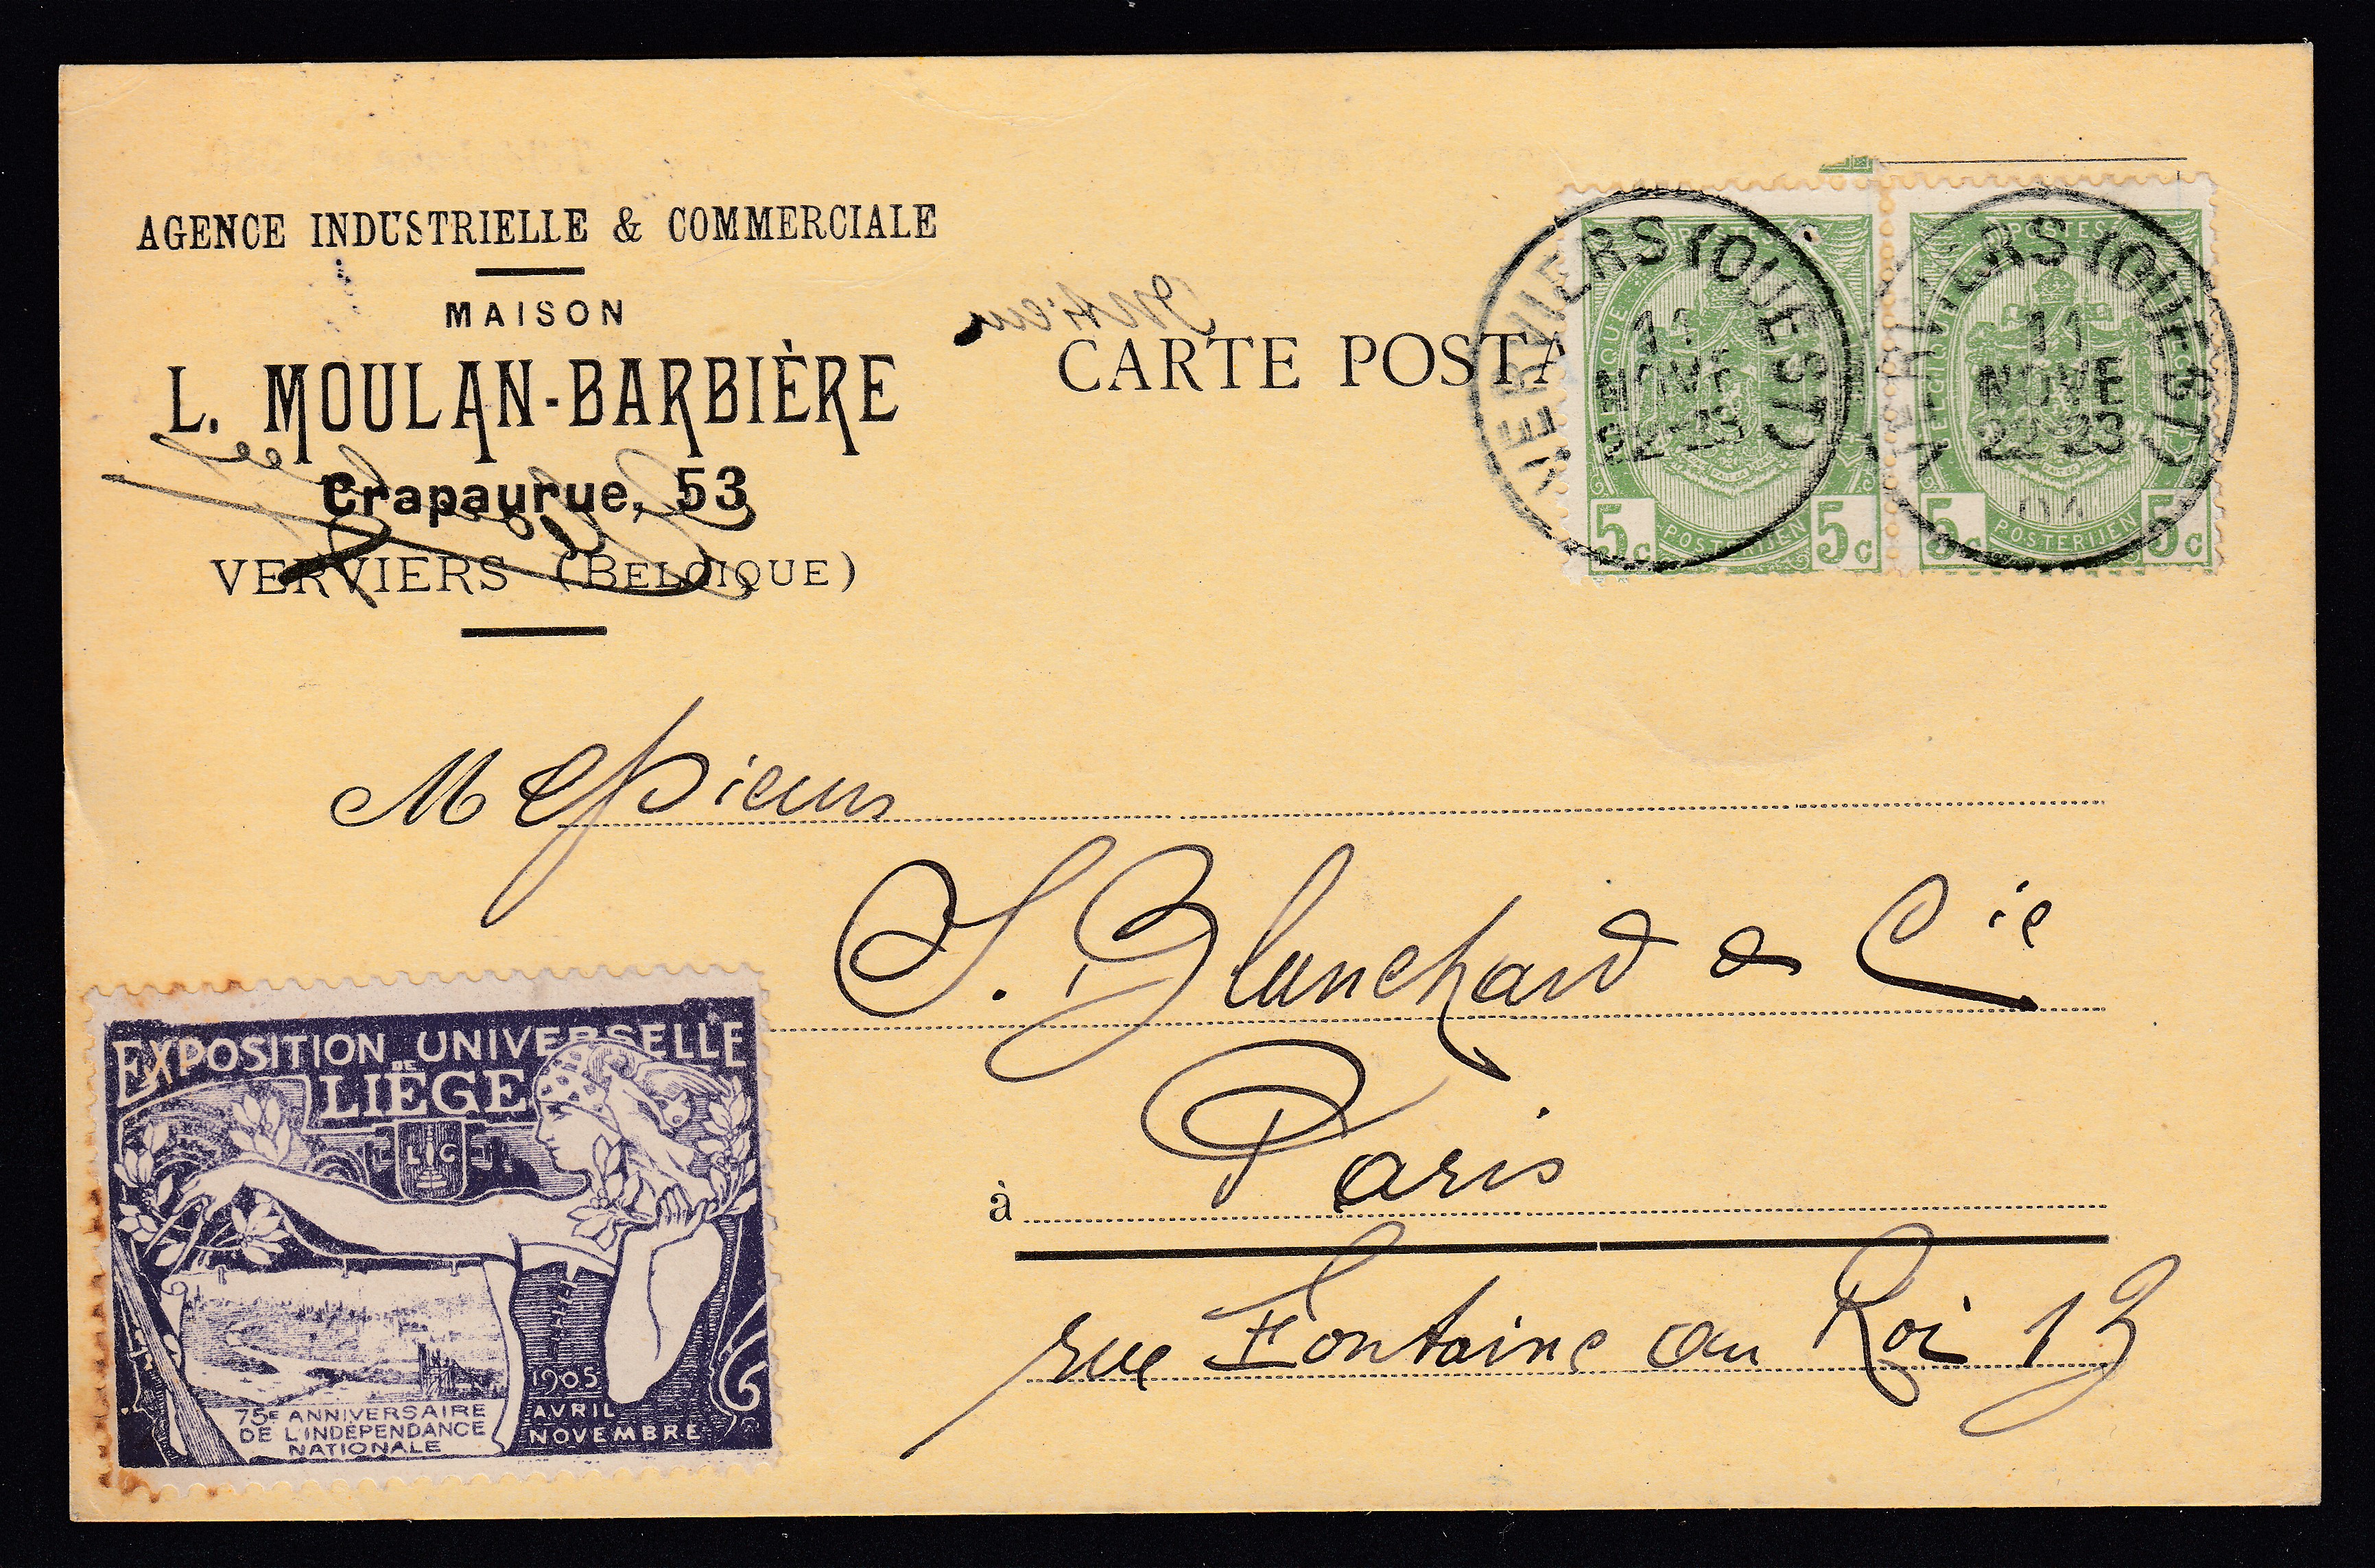 AGENCE INDUSTRIELLE & COMMERCIALE
MAISON
L. MOULAN-BARBIÈRE
Crapaurue, 53
VERVIERS (BELGIQUE)
CARTE POSTA
POSTES
VERVIERS (OUEST)
11
NOVE
22-23
5c 5c
POSTERIJEN
POSTES
VERVIERS (OUEST)
11
NOVE
22-23
04
5c 5c
POSTERIJEN
Messieurs
S. Blanchard & Cie
à Paris
rue Fontaine au Roi 13
EXPOSITION UNIVERSELLE
DE
LIÈGE
LG
1905
AVRIL
NOVEMBRE
75E ANNIVERSAIRE
DE L'INDÉPENDANCE
NATIONALE